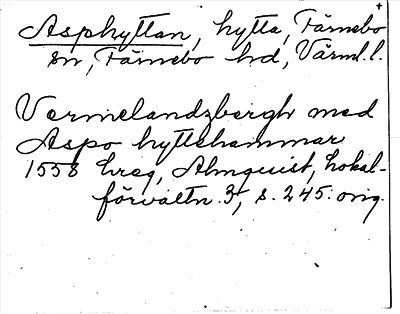 Asphyttan, hytta, Färnebo
sn, Färnebo hd, Värml. l.
Vermelandzbergh med
Aspo hyttehammar
1558 hreg, Almquist, Lokal-
förvaltn. 3, s. 245. orig.